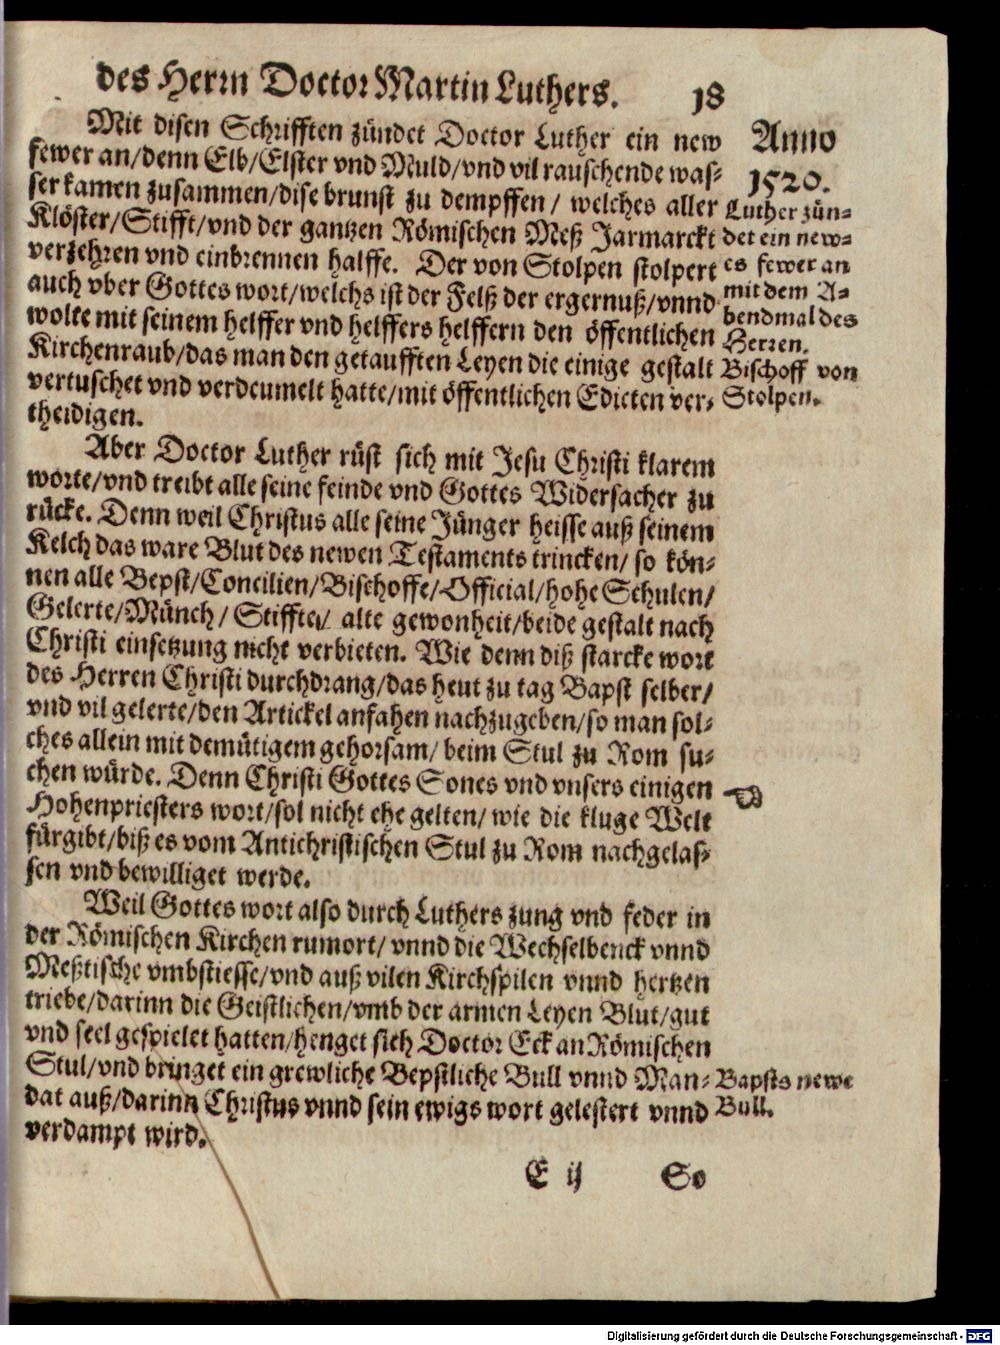 des Herrn Doctor Martin Luthers. 18
Mit disen Schrifften zündet Doctor Luther ein new
fewer an/denn Elb/Elster vnd Muld/vnd vil rauschende was-
ser kamen zusammen/dise brunst zu dempffen/ welches aller
Klöster/Stifft/vnd der gantzen Römischen Meß Jarmarckt
verzehren vnd einbrennen halffe. Der von Stolpen stolpert
auch vber Gottes wort/welchs ist der Felß der ergernuß/vnnd
wolte mit seinem helffer vnd helffers helffern den öffentlichen
Kirchenraub/das man den getaufften Leyen die einige gestalt
vertuschet vnd verdeumelt hatte/mit öffentlichen Edicten ver-
theidigen.
Anno
1520.
Luther zün-
det ein new-
es fewer an
mit dem A-
bendmal des
Herren.
Bischoff von
Stolpen.
Aber Doctor Luther rüst sich mit Jesu Christi klarem
worte/vnd treibt alle seine feinde vnd Gottes Widersacher zu
rücke. Denn weil Christus alle seine Jünger heisse auß seinem
Kelch das ware Blut des newen Testaments trincken/ so kön-
nen alle Bepst/Concilien/Bischoffe/Official/hohe Schulen/
Gelerte/Münch/ Stiffte/ alte gewonheit/beide gestalt nach
Christi einsetzung nicht verbieten. Wie denn diß starcke wort
des Herren Christi durchdrang/das heut zu tag Bapst selber/
vnd vil gelerte/den Artickel anfahen nachzugeben/so man sol-
ches allein mit demütigem gehorsam/ beim Stul zu Rom su-
chen würde. Denn Christi Gottes Sones vnd vnsers einigen
Hohenpriesters wort/sol nicht ehe gelten/ wie die kluge Welt
fürgibt/biß es vom Antichristischen Stul zu Rom nachgelas-
sen vnd bewilliget werde.
Weil Gottes wort also durch Luthers zung vnd feder in
der Römischen Kirchen rumort/ vnnd die Wechselbenck vnnd
Meßtische vmbstiesse/vnd auß vilen Kirchspilen vnnd hertzen
triebe/darinn die Geistlichen/vmb der armen Leyen Blut/gut
vnd seel gespielet hatten/henget sich Doctor Eck an Römischen
Stul/vnd bringet ein grewliche Bepstliche Bull vnnd Man-
dat auß/darinn Christus vnnd sein ewigs wort gelestert vnnd
verdampt wird.
Bapsts newe
Bull.
E ij So
Digitalisierung gefördert durch die Deutsche Forschungsgemeinschaft - DFG